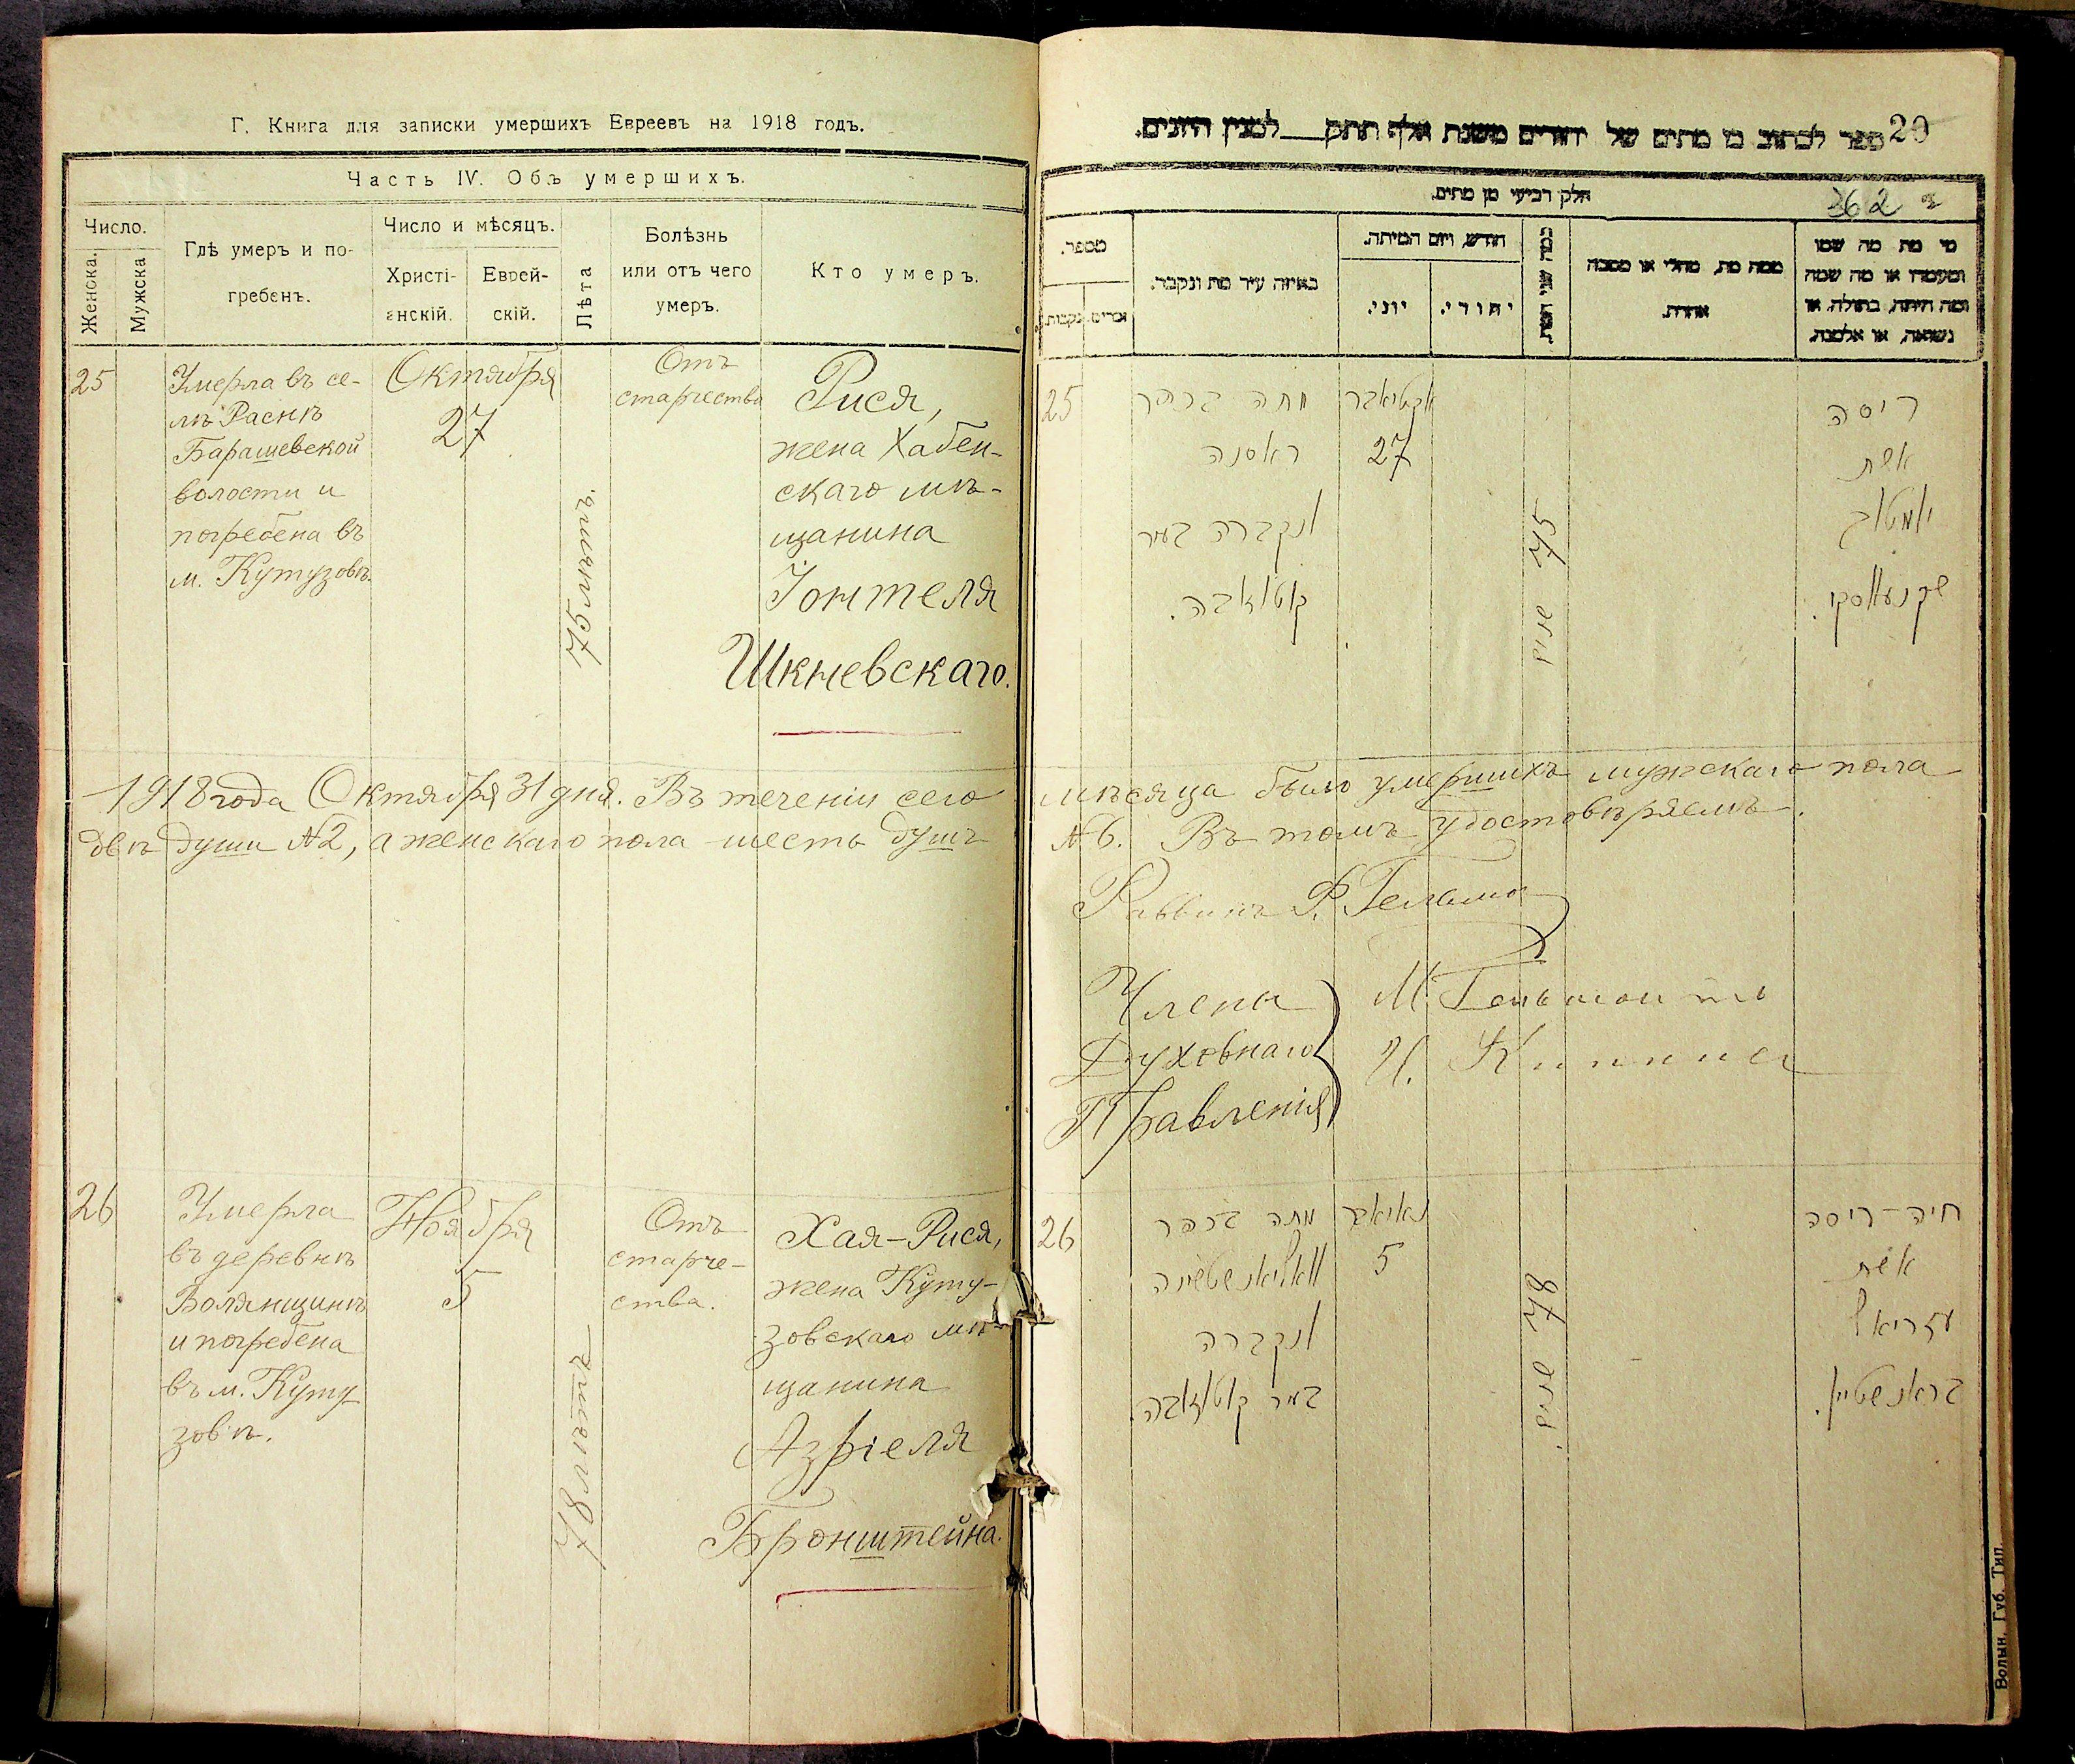 Г. Книга для записки умершихъ Евреевъ на 1918 годъ.
Часть IV. Объ умершихъ.
Число.
Женска.
Мужска
Гдѣ умеръ и по-
гребенъ.
Число и мѣсяцъ.
Христі-
анскій.
Еврей-
скій.
Лѣта
Болѣзнь
или отъ чего
умеръ.
Кто умеръ.
25
Умерла въ се-
лѣ Раснѣ
Барашевской
волости и
погребена въ
м. Кутузовѣ.
Октября
27
75 лѣтъ.
Отъ
старчества
Рися,
жена Хабен-
скаго мѣ-
щанина
Іонтеля
Шкневскаго.
1918 года Октября 31 дня. Въ теченіи сего
двѣ души №2, а женскаго пола шесть душъ
26
Умерла
въ деревнѣ
Волянщинѣ
и погребена
въ м. Куту-
зовѣ.
Ноября
5
78 лѣтъ
Отъ
старче-
ства.
Хая-Рися,
жена Куту-
зовскаго мѣ-
щанина
Азріеля
Бронштейна.
ספר לכתוב בו מתים של יהודים משנת אלף תתק למנין היונים.
20
חלק רביעי מן מתים.
362
מספר.
נקבות.
זכרים.
באיזה עיר מת ונקבר.
חודש ויום המיתה.
יוני.
יהודי.
כמה שני המת
ממה מת, מחלי או מסבה
אחרת.
מי מת מה שמו
ומעמדו או מה שמה
ומה היתה, בתולה, או
נשואה, או אלמנה.
25
מתה בכפר
ראסנה
ונקברה בעיר
קוטוזובה.
אקטיאבר
27
75 שנים
ריסה
אשת
יומטוב
שקנעווסקי.
мѣсяца было умершихъ мужскаго пола
№6. Въ томъ удостовѣряемъ.
Раввинъ
Члены
Духовнаго
Правленія
26
מתה בכפר
וואליאנשטשינה
ונקברה
בעיר קוטוזובה.
נאיאבר
5
78 שנים.
חיה-ריסה
אשת
עזריאל
בראנשטיין.
Волын. Губ. Тип.